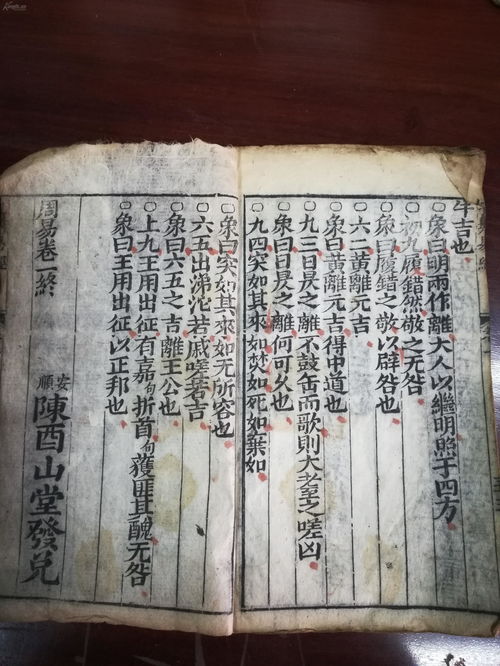 牛吉也
○象曰明兩作離大人以繼明照于四方
○初九履錯然敬之无咎
○象曰履錯之敬以辟咎也
○六二黃離元吉
○象曰黃離元吉得中道也
○九三日昃之離不鼓缶而歌則大耋之嗟凶
○象曰日昃之離何可久也
○九四突如其來如焚如死如棄如
○象曰突如其來如无所容也
○六五出涕沱若戚嗟若吉
○象曰六五之吉離王公也
○上九王用出征有嘉句折首句獲匪其醜无咎
○象曰王用出征以正邦也
周易卷一終
安順
陳西山堂發兌